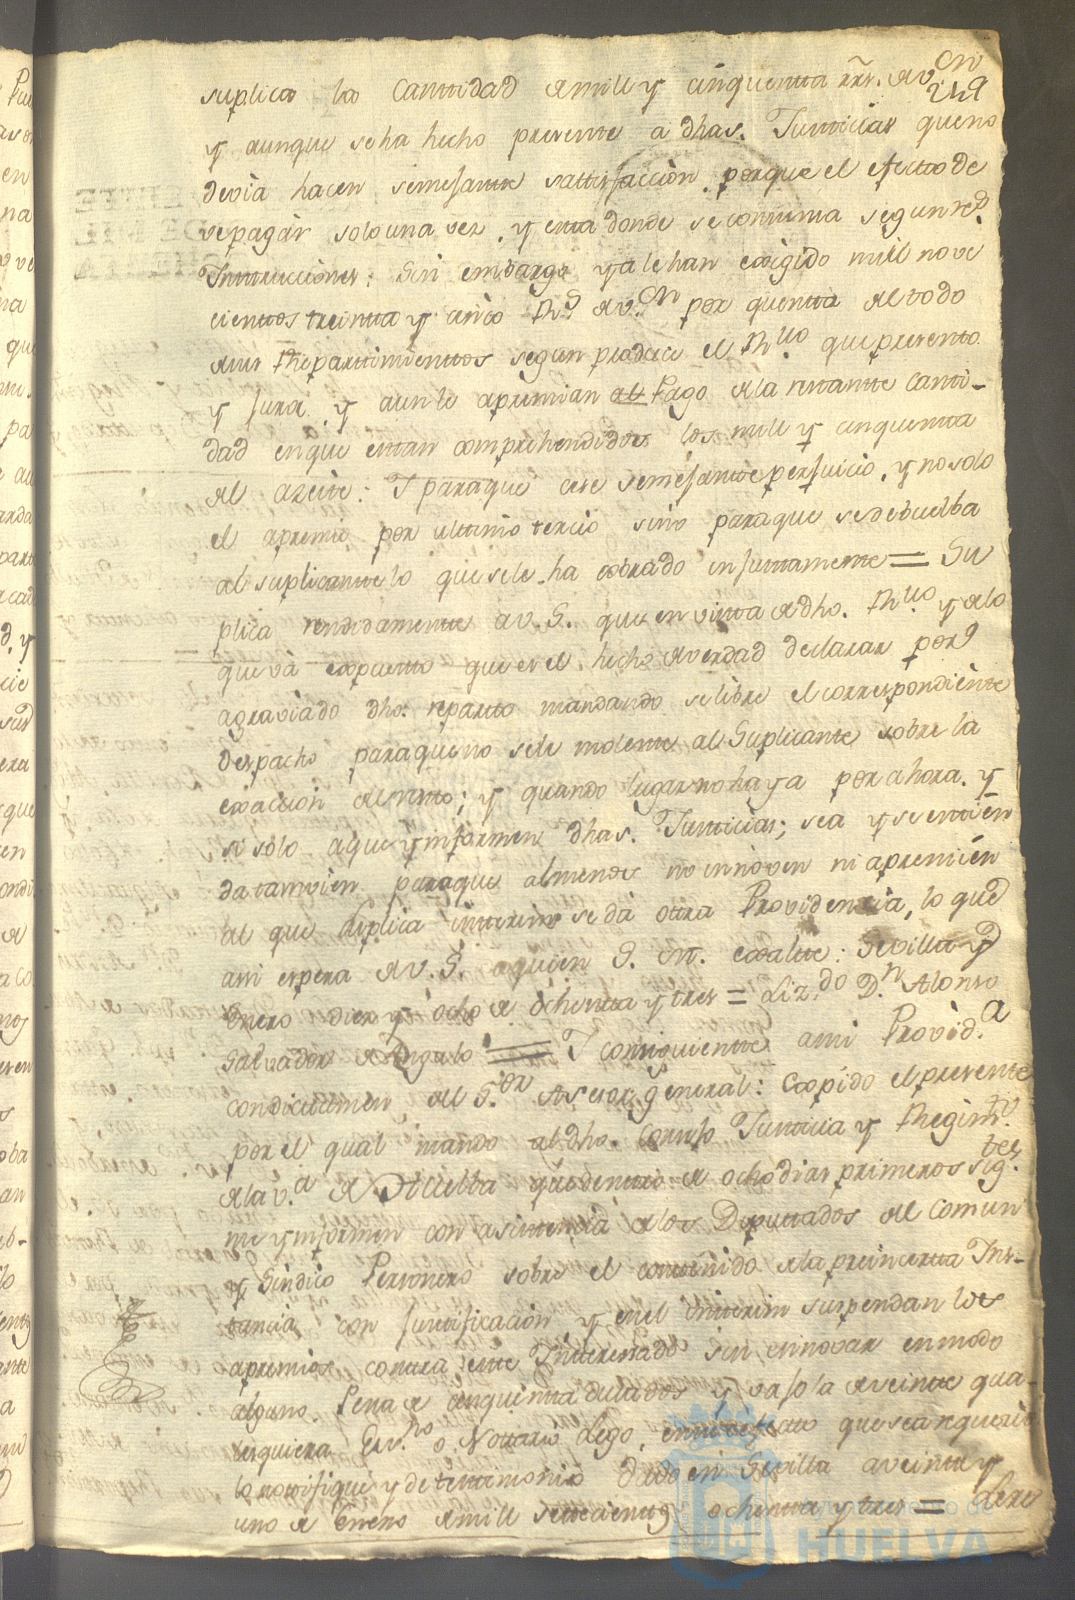 suplica la Cantidad de mill y cinquenta rrs. de vn
249
y aunque se ha hecho presente a dhas. Justicias que no
devia hacer semejante sattisfaccion, porque el efecto de
se pagar solo una vez, y es a donde se consuma segun rs.
Instrucciones: Sin embargo ya le han exigido mill nove
cientos treinta y cinco Rs. de vn por quenta del todo
de sus Repartimientos segun produce el Rvo. que presento
y jura y aun le apremian al Pago de la restante canti-
dad en que estan comprehendidos los mill y cinquenta
del azeite: Y para que cese semejante perjuicio, y no solo
el apremio por ultimo tercio sino para que se debuelba
al suplicante lo que se le ha cobrado injustamente = Su
plica rendidamente a V. S. que en vista de dho. Rvo. y de lo
que va expuesto que es el hecho de verdad declarar por
agraviado dho. reparto mandando se libre el correspondiente
despacho para que no se le moleste al Suplicante sobre la
exaccion del resto; y quando lugar no haya por ahora, y
si solo a que ymformen dhas. Justicias; sea y se entien
da tamvien para que al menos no innoven ni apremien
al que suplica interin se da otra Providencia, lo que
asi espera de V. S. a quien S. M. exalte: Sevilla y
Enero diez y ocho de ochenta y tres = Lizdo. Dn. Alonso
Salvador de Angulo = Y consiguiente a mi Provida.
con dictamen del Sor. Asesor general: Expido el presente
por el qual mando al dho. Consejo Justicia y Regimto.
de la va. de Huelba que dentro de ocho dias primeros sigtes.
me ynformen con asistencia de los Diputados del Comun
y Sindico Personero sobre el contenido de la preinserta Ins-
tancia con justificacion y en el interin suspendan los
apremios contra este Interesado sin innovar en modo
alguno. Pena de cinquenta ducados y vajo la de veinte qua-
lesquiera Esvno. o Nottario Lego, que sea requerido
lo notifique y de testimonio dado en Sevilla a veinte y
uno de Enero de mill settecientos ochenta y tres =
Ayuntamiento de
HUELVA